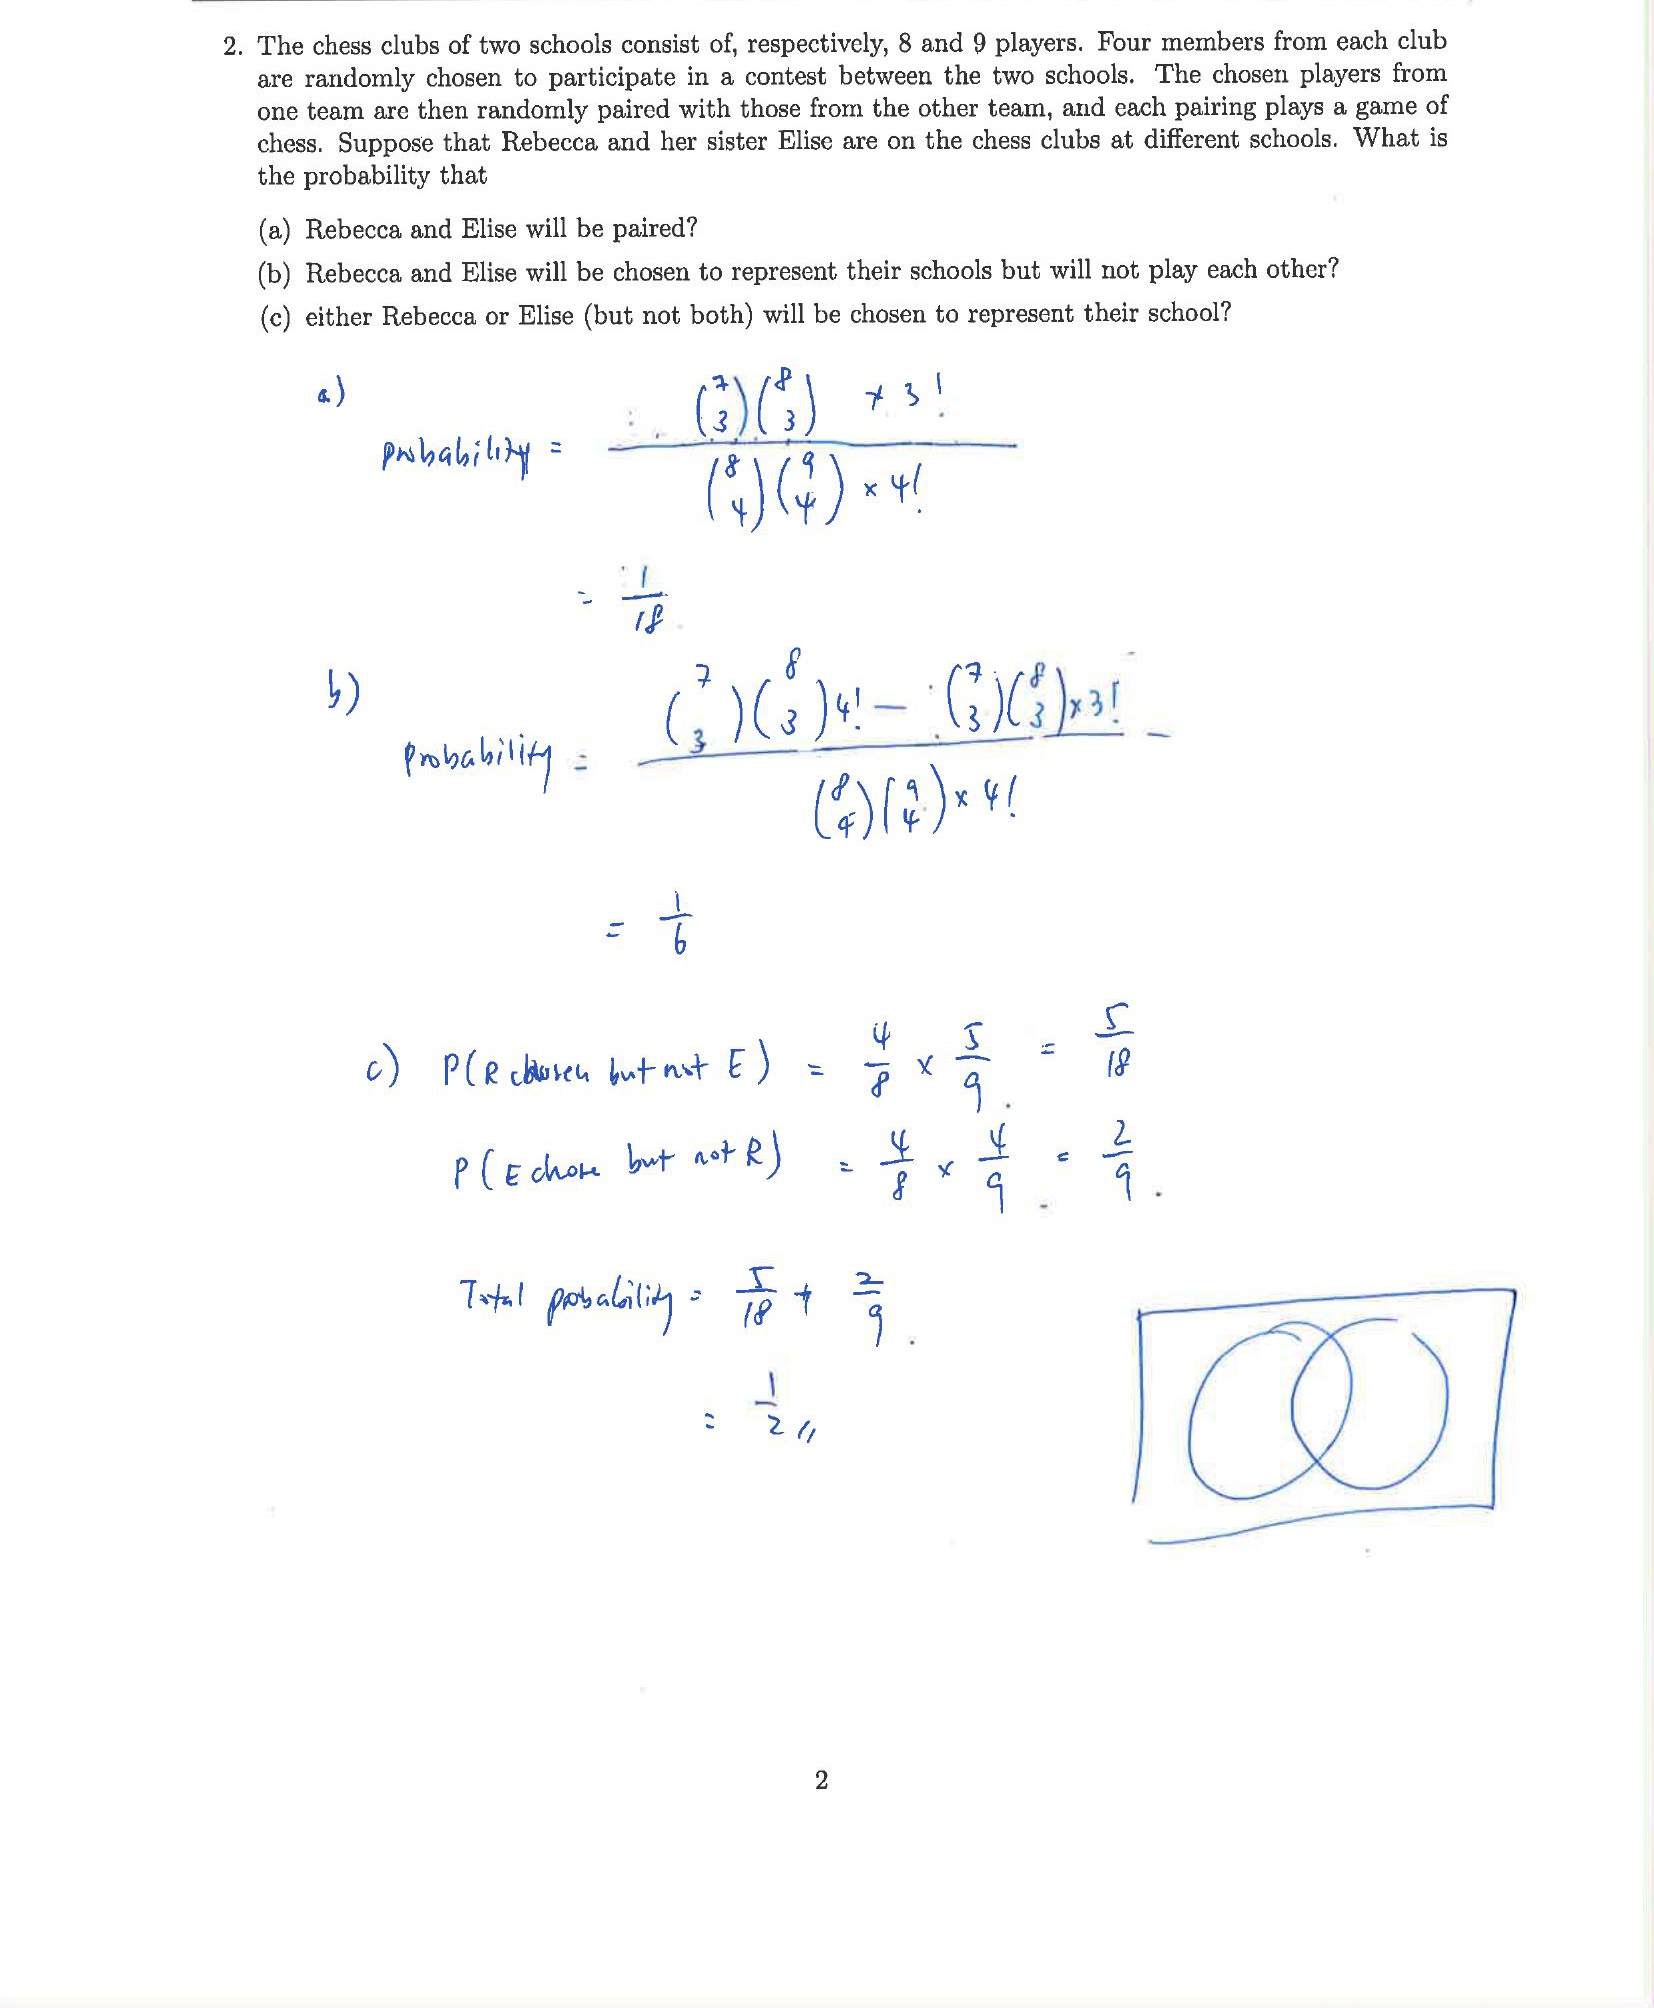 2. The chess clubs of two schools consist of, respectively, 8 and 9 players. Four members from each club
are randomly chosen to participate in a contest between the two schools. The chosen players from
one team are then randomly paired with those from the other team, and each pairing plays a game of
chess. Suppose that Rebecca and her sister Elise are on the chess clubs at different schools. What is
the probability that
(a) Rebecca and Elise will be paired?
(b) Rebecca and Elise will be chosen to represent their schools but will not play each other?
(c) either Rebecca or Elise (but not both) will be chosen to represent their school?
a)
probability = \frac{\binom{7}{3}\binom{8}{3} × 3!}{\binom{8}{4}\binom{9}{4} × 4!}
= \frac{1}{18}
b)
probability = \frac{\binom{7}{3}\binom{8}{3}4! - \binom{7}{3}\binom{8}{3} × 3!}{\binom{8}{4}\binom{9}{4} × 4!}
= \frac{1}{6}
c) P(R chosen but not E) = \frac{4}{8} × \frac{5}{9} = \frac{5}{18}
P(E chose but not R) = \frac{4}{8} × \frac{4}{9} = \frac{2}{9}.
Total probability = \frac{5}{18} + \frac{2}{9}.
= \frac{1}{2} //
2